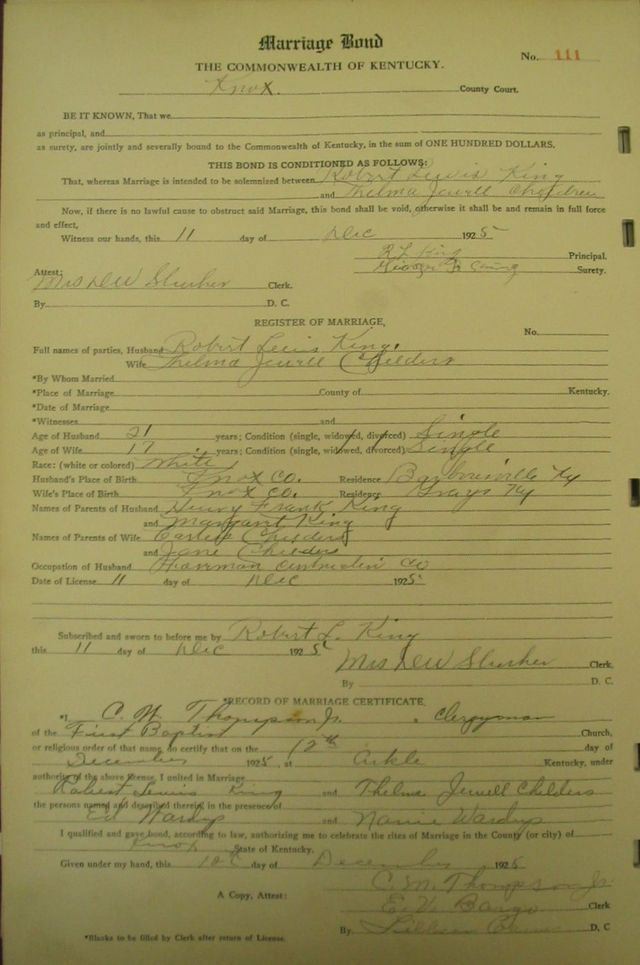 Marriage Bond
No. 111
THE COMMONWEALTH OF KENTUCKY.
Knox. County Court.
BE IT KNOWN, That we
as principal, and
as surety, are jointly and severally bound to the Commonwealth of Kentucky, in the sum of ONE HUNDRED DOLLARS.
THIS BOND IS CONDITIONED AS FOLLOWS:
That, whereas Marriage is intended to be solemnized between Robert Lewis King
and Thelma Jewell Childers
Now, if there is no lawful cause to obstruct said Marriage, this bond shall be void, otherwise it shall be and remain in full force
and effect,
Witness our hands, this 11 day of Dec 1925
R L King Principal.
Surety.
Attest:
Mrs D W Slusher Clerk.
By D. C.
REGISTER OF MARRIAGE,
No.
Full names of parties, Husband Robert Lewis King.
Wife Thelma Jewell Childers
*By Whom Married
*Place of Marriage County of Kentucky.
*Date of Marriage
*Witnesses and
Age of Husband 21 years; Condition (single, widowed, divorced) Single
Age of Wife 17 years; Condition (single, widowed, divorced) Single
Race: (white or colored) White
Husband's Place of Birth Knox Co. Residence Barbourville Ky
Wife's Place of Birth Knox Co. Residence Grays Ky
Names of Parents of Husband Frank King
and Margaret King
Names of Parents of Wife Childers
and Jane Childers
Occupation of Husband Co
Date of License 11 day of Dec 1925
Subscribed and sworn to before me by Robert L. King
this 11 day of Dec 1925
Mrs D W Slusher Clerk.
By D. C.
*RECORD OF MARRIAGE CERTIFICATE,
*I C. M. Thompson Jr. , Clergyman
of the First Baptist Church,
or religious order of that name, do certify that on the 12th day of
December 1925, at Arkle Kentucky, under
authority of the above license, I united in Marriage
Robert Lewis King and Thelma Jewell Childers
the persons named and described therein in the presence of
Ed Wardup and Nannie Wardup
I qualified and gave bond, according to law, authorizing me to celebrate the rites of Marriage in the County (or city) of
Knox State of Kentucky.
Given under my hand, this day of December 1925
C. M. Thompson Jr.
A Copy, Attest: Clerk
By Lillian D. C
*Blanks to be filled by Clerk after return of License.